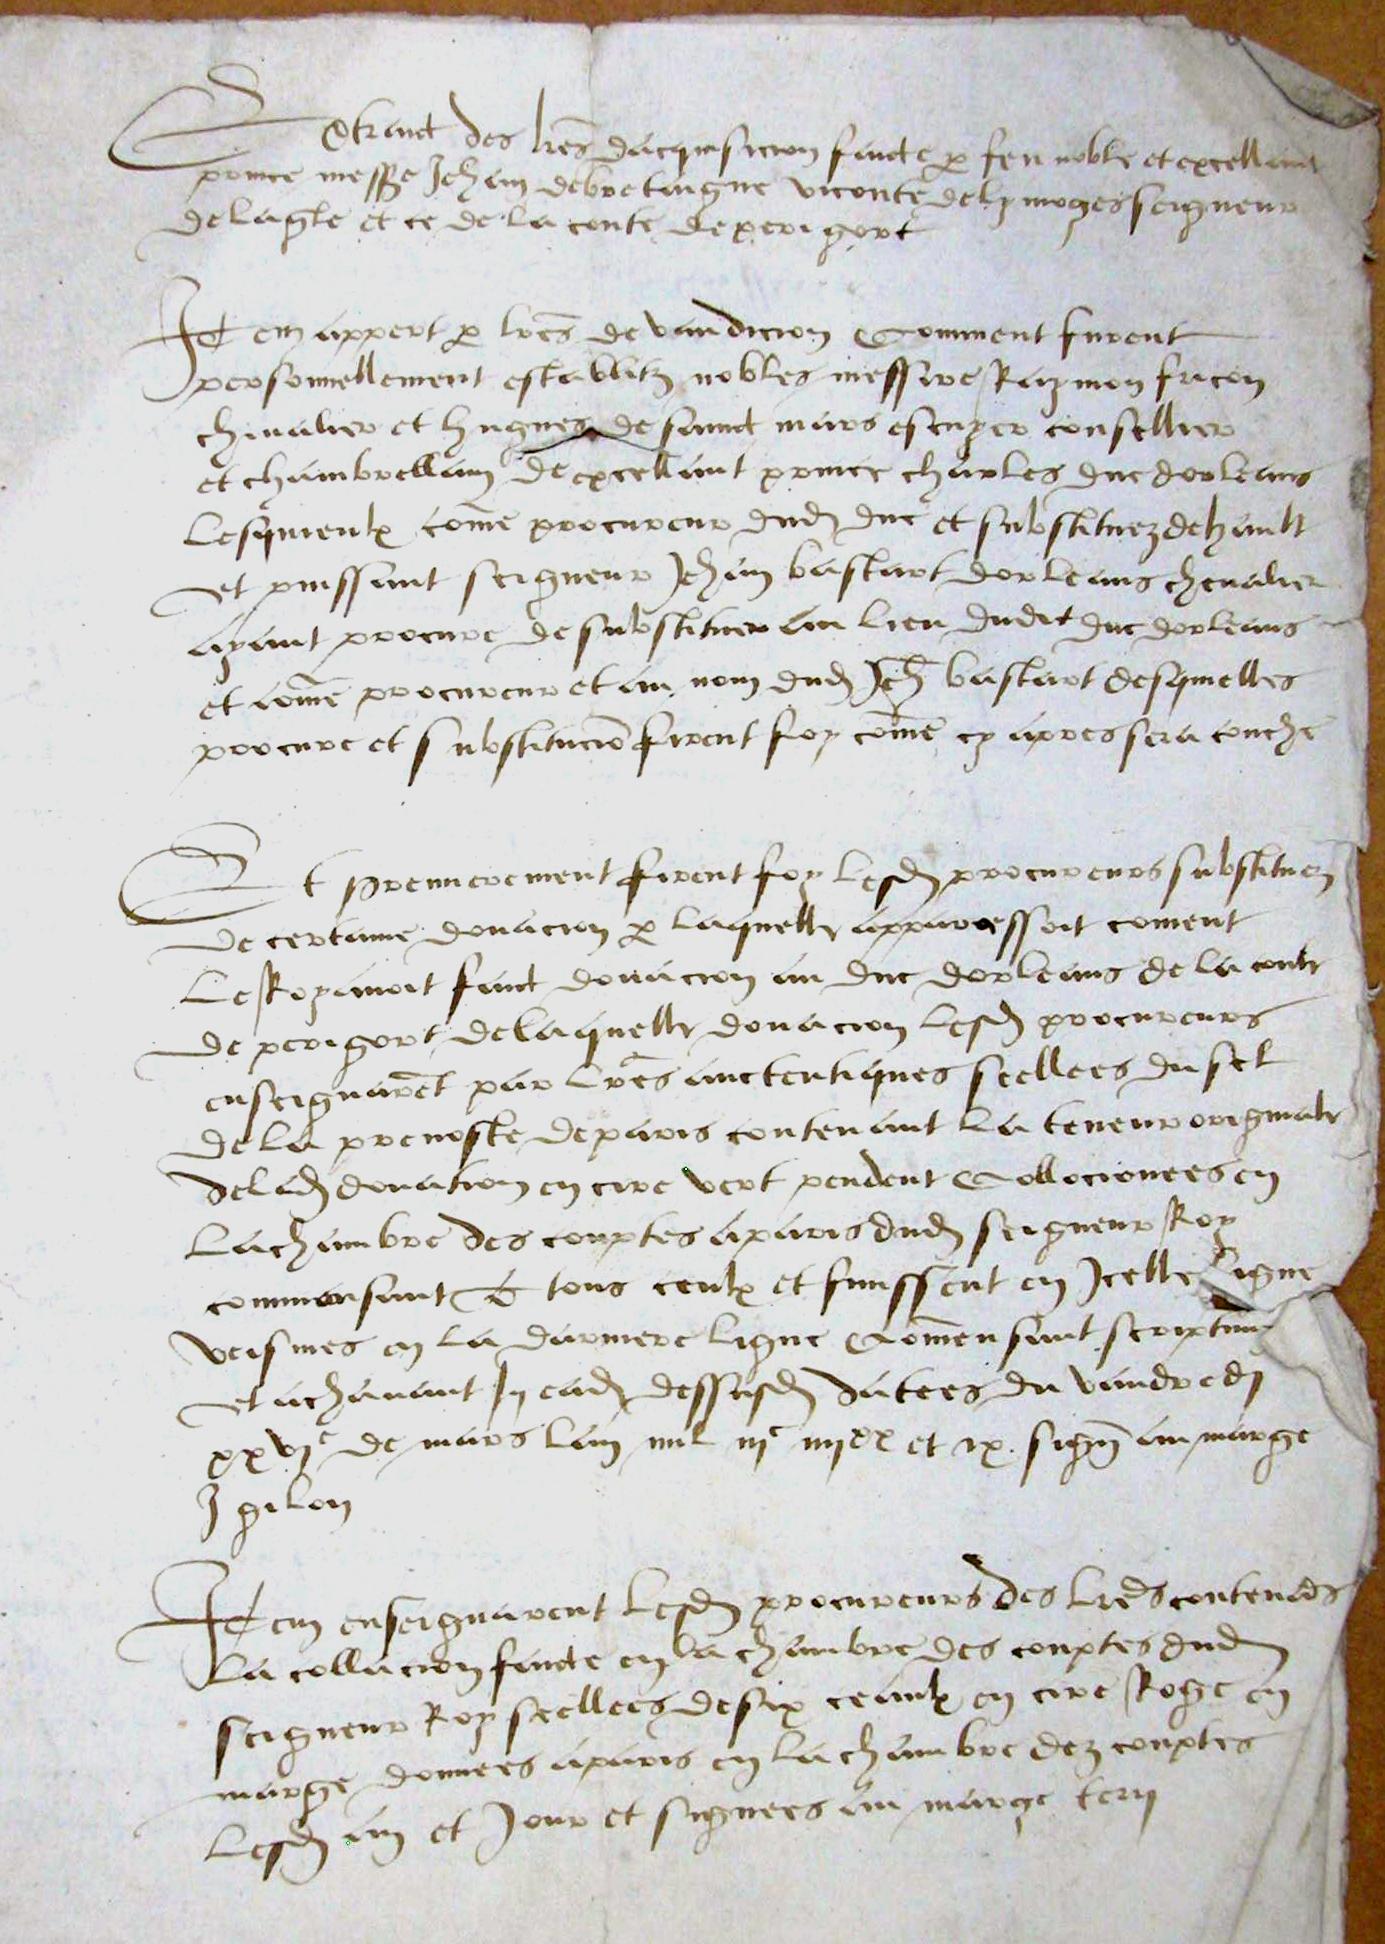 Extraict des lres dacquisicion faicte p feu noble et excellant
prince messe Jehan de bretaigne viconte de lymoges seigneur
de lagle et ce de la conte de perigort
Item appert p lres de vandicion Comment furent
personnellement establitz nobles messire Raymon fricon
chivalier et hugues de sainct mars escuyer consellier
et chambrellain de excellant prince charles duc dorleans
Lesquieulx come procureur dud duc et substituez de hault
et puissant seigneur Jehan bastart dorleans chevalier
ayant procure de substituer au lieu dudit duc dorleans
et come procureur et au nom dud Jeh bastart desquelles
procure et substitucio firent foy come cy apres sera couche
Et premierement firent foy lesd procureurs substituez
de certaine donacion p laquelle apparessoit coment
Le Roy avoit faict donacion au duc dorleans de la conte
de perigort de laquelle donacion lesd procureurs
enseignaret par lres auctentiques scellees du sel
de la prevoste de paris contenant la teneur originale
de lad donation en cire vert pendent Collocionees en
La chambre des comptes a paris dud seigneur Roy
commansant A tous ceulx et finissent en Jcelle Ligne
veismes en la darniere ligne Comensant scriptum
et achavant In ead dessusd datees du vandredi
xxvje de mars lan mil iijc iiijxx et ix sign au marge
J gilon
Item enseignarent lesd procureurs des lres contenans
La collacion faicte en la chambre des comptes dud
seigneur Roy scellees de six ceaulx en cire Roge en
marge donnees a paris en la chambre dez comptes
Lesd an et Jour et signees au marge